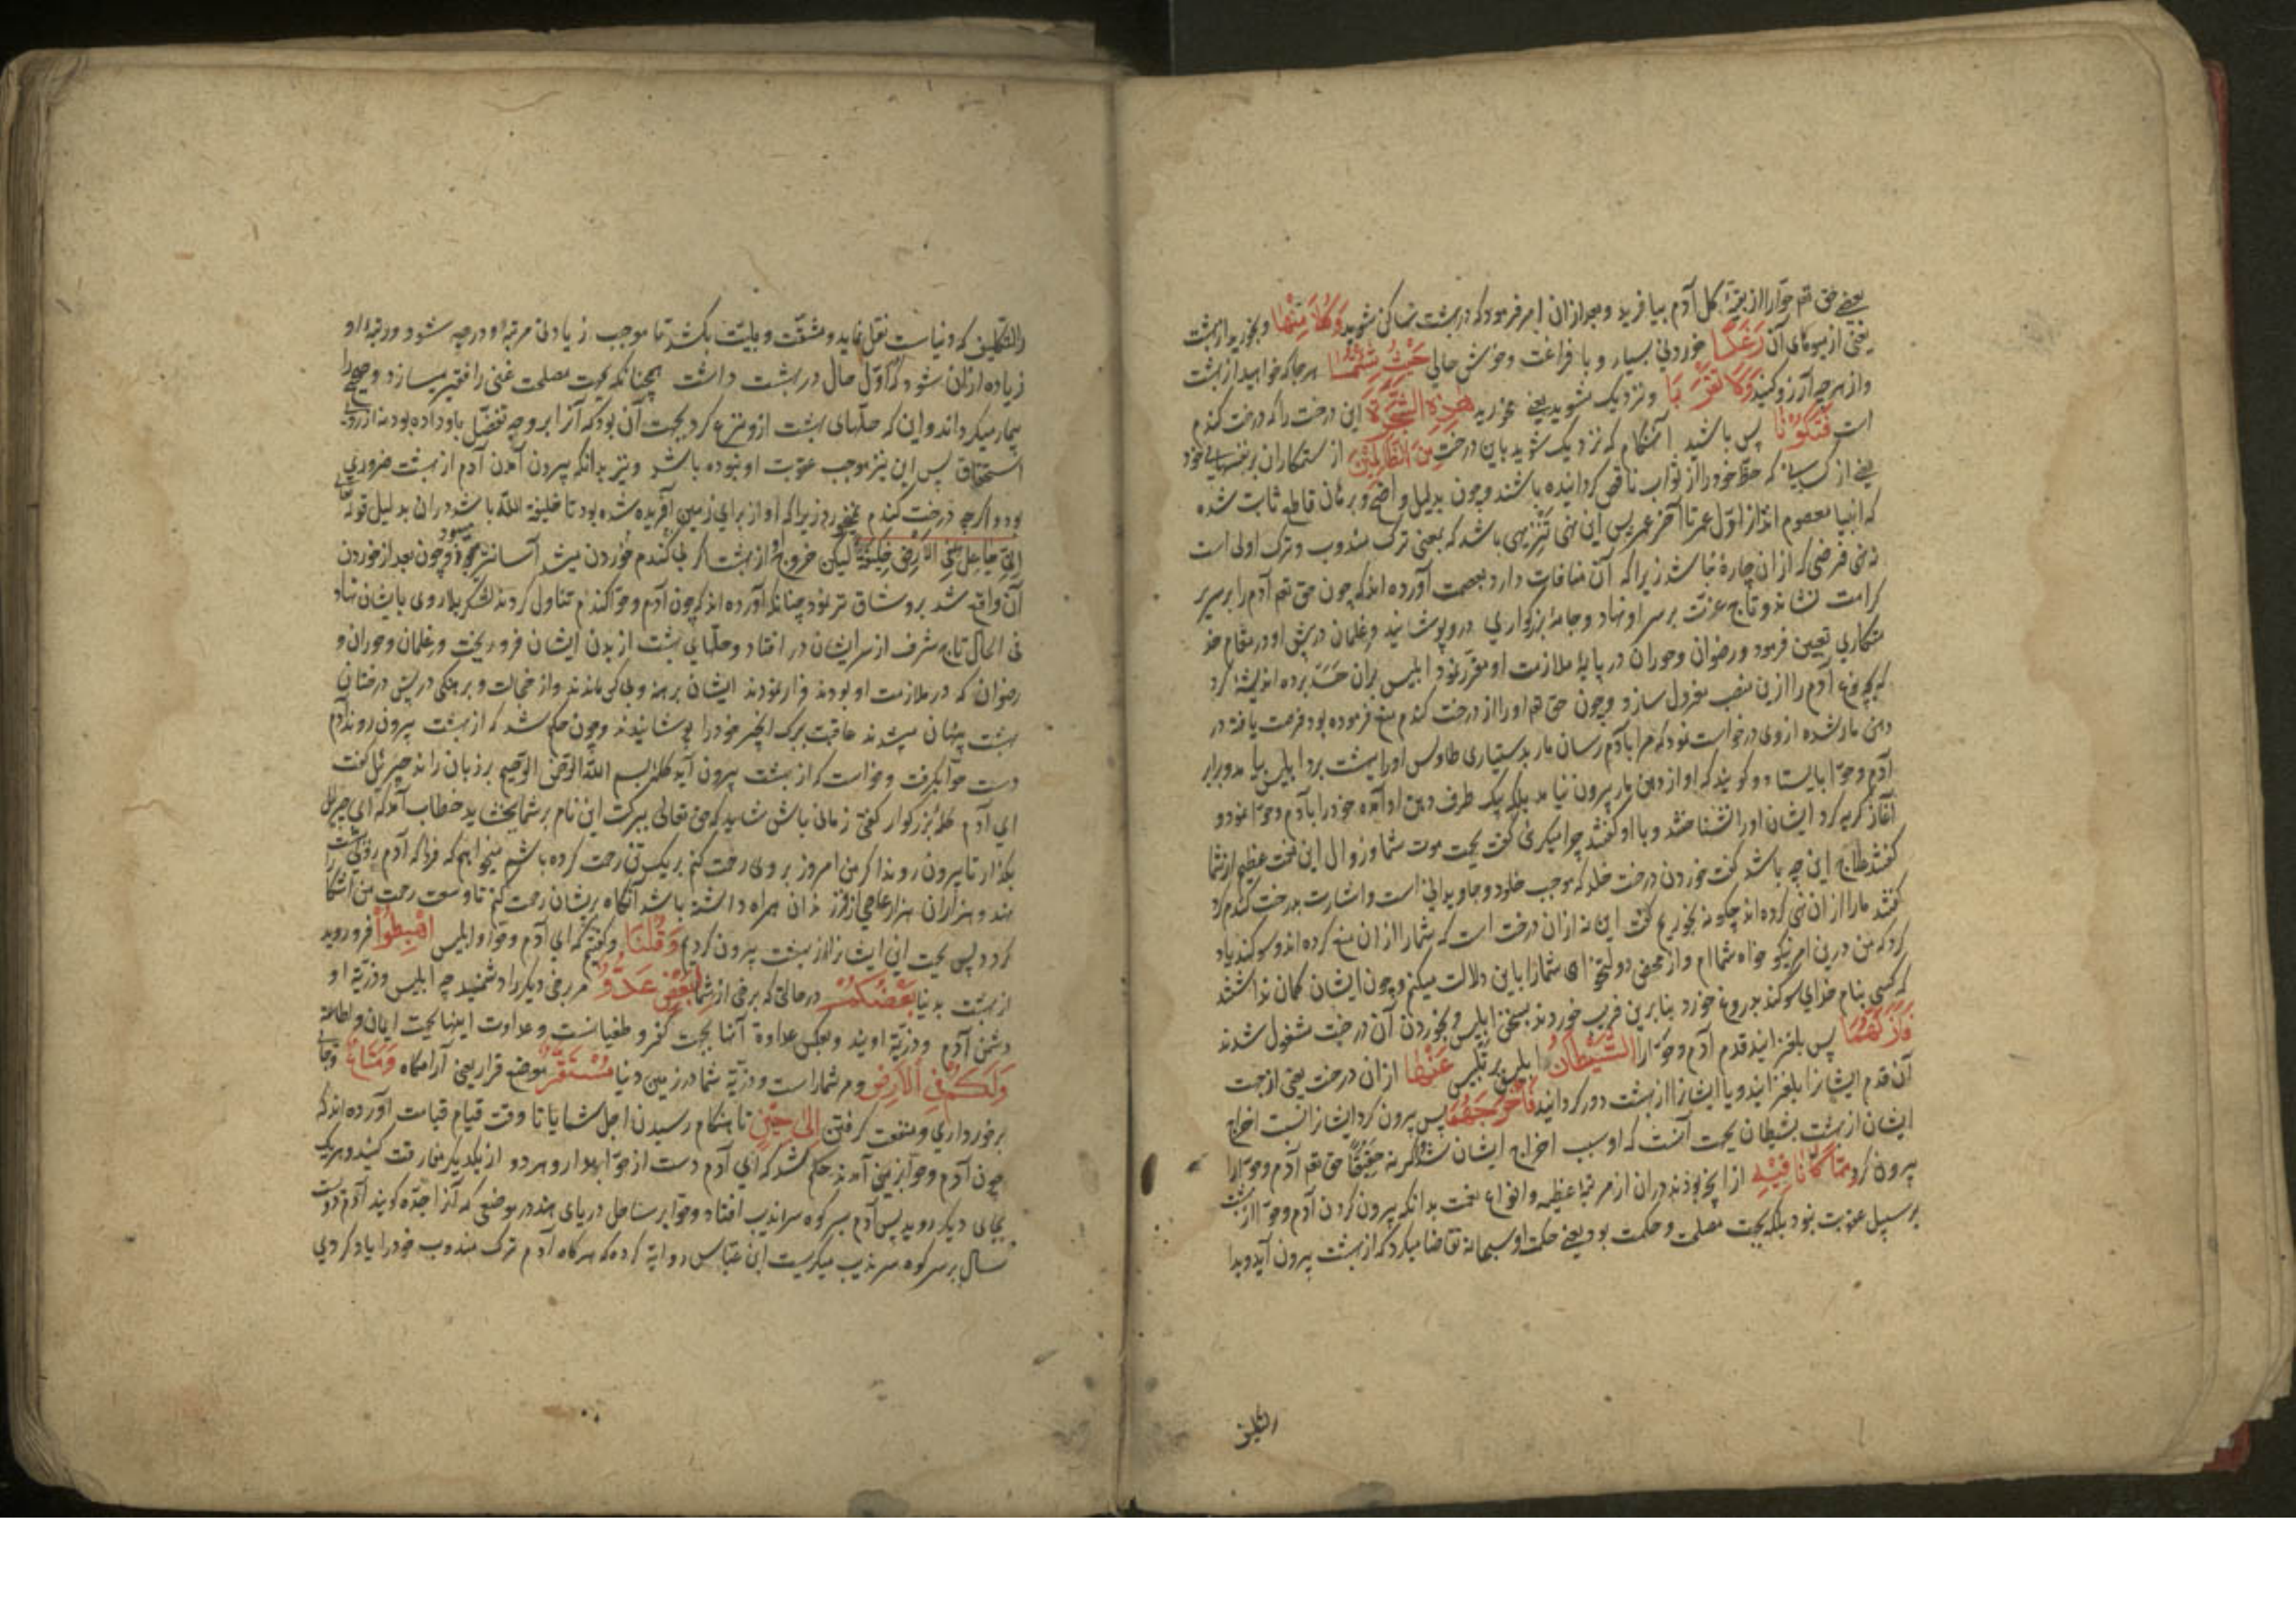 یعنے حق تعم حوا را از بقیهٔ کل آدم بیافرید و بعد ازان امر فرمود که در بهشت ساکن شوید وَكُلَا مِنْهَا و بخورید از بهشت
یعنی از میوهای آن رَغَدًا خوردنی بسیار و با فراغت و خوش حالی حَيْثُ شِئْتُمَا هر جا که خواهید از بهشت
و از هر چه آرزو کنید وَلَا تَقْرَبَا و نزدیک مشوید یعنے مخورید هٰذِهِ الشَّجَرَةَ این درخت را که درخت کندم
است فَتَكُوْنَا پس باشید آنهنگام که نزدیک شوید باین درخت مِنَ الظَّالِمِيْنَ از ستمکاران بر نفسهای خود
یعنے از کسانے که حظ خود را از ثواب ناقص کردانیده باشند و چون بدلیل واضح و برهان قاطع ثابت شده
که انبیا معصوم اند از اوّل عمر تا آخر عمر پس این نهی تنزیهی باشد که بمعنی ترک مندوب و ترک اولی است
نه نهی فرضی که ازان چاره نباشد زیرا که آن منافات دارد بعصمت آورده اند که چون حق تعم آدم را بر سریر
کرامت نشاند و تاج عزّت بر سر او نهاد و جامهٔ بزرکواری در و پوشانید و غلمان در پیش او در مقام خد
متکاری تعیین فرمود و رضوان و حوران در پایهٔ ملازمت او مقرّر نمود ابلیس بران حسد برده اندیشهٔ کرد
که بچه نوع آدم را ازین منصب معزول سازد و چون حق تعم او را از درخت کندم منع فرموده بود فرصت یافته در
دهن مار شده از وی درخواست نمود که مرا بآدم رسان مار بدستیاری طاوس او را ببهشت برد ابلیس بیامد و برابر
آدم و حوّا بایستاد و کویند که او از دهن مار بیرون نیامد بلکه بیک طرف دهن او آمده خود را بآدم و حوّا نمود و
آغاز کریه کرد ایشان او را نشناختند و با او کفتند چرا میکریی کفت بجهت موت شما و زوال این نعمت عظیم از شما
کفتند علاج این چه باشد کفت خوردن درخت خلد که موجب خلود و جاویدانی است و اشارت بدرخت کندم کرد
کفتند ما را ازان نهی کرده اند چکونه بخوریم کفت این نه ازان درخت است که شما را ازان منع کرده اند و سوکند یاد
کرد که من درین امر نیکو خواه شماام و از محض دولتخواهی شما را باین دلالت میکنم و چون ایشان کمان نداشتند
که کسی بنام خدای سوکند بدروغ خورد بنابرین فریب خوردند بسخن ابلیس و بخوردن آن درخت مشغول شدند
فَأَزَلَّهُمَا پس بلغزانید قدم آدم و حوّا را الشَّيْطَانُ ابلیس پر تلبیس عَنْهَا ازان درخت یعنی از جهت
آن قدم ایشانرا بلغزانید و یا ایشانرا از بهشت دور کردانید فَأَخْرَجَهُمَا پس بیرون کرد ایشانرا نسبت اخراج
ایشان از بهشت بشیطان بجهت آنست که او سبب اخراج ایشان شد و کرنه حقیقةً حق تعم آدم و حوّا را
بیرون کرد مِمَّا كَانَا فِيْهِ از آنچه بودند دران از مرتبهٔ عظیمه و انواع نعمت بدانکه بیرون کردن آدم و حوّا از بهشت
بر سبیل عقوبت نبود بلکه بجهت مصلحت و حکمت بود یعنے حکمت او سبحانه تقاضا میکرد که از بهشت بیرون آید و بدا
رالتکلیف
رالتکلیف که دنیاست نقل نماید و مشقّت و بلیّت بکشد تا موجب زیادتی مرتبه و درجهٔ او شود و رتبهٔ او
زیاده ازان شود که اوّل حال در بهشت داشت همچنانکه بجهت مصلحت غنی را فقیر میسازد و صحیح را
بیمار میکرداند و این که حلّهای بهشت ازو نزع کرد بجهت آن بود که آنرا بر وجه تفضّل باو داده بود نه از روی
استحقاق پس این نیز موجب عقوبت او نبوده باشد و نیز بدانکه بیرون آمدن آدم از بهشت ضروری
بود و اکرچه درخت کندم نمیخورد زیرا که او از برای زمین آفریده شده بود تا خلیفة اللّه باشد دران بدلیل قوله تعالی
إِنِّي جَاعِلٌ فِي الْأَرْضِ خَلِيفَةً لیکن خروج او از بهشت اکر نه کندم خوردن میشد آسانتر میبود و چون بعد از خوردن
آن واقع شد بر و شاق تر بود چنانکه آورده اند که چون آدم و حوّا کندم تناول کردند لشکر بلا روی بایشان نهاد
فی الحال تاج شرف از سر ایشان در افتاد و حلّهای بهشت از بدن ایشان فرو ریخت و غلمان و حوران و
رضوان که در ملازمت او بودند فرار نمودند ایشان برهنه و بی کس ماندند و از خجالت و برهنکی در پس درختان
بهشت پنهان میشدند عاقبت ببرک انجیر خود را پوشانیدند و چون حکم شد که از بهشت بیرون روند آدم
دست حوّا بکرفت و خواست که از بهشت بیرون آید کلمهٔ بسم اللّه الرّحمن الرّحیم بر زبان راند جبرئیل کفت
ای آدم کلمهٔ بزرکوار کفتی زمانی باش شاید که حق تعالی ببرکت این نام بر شما بخشاید خطاب آمد که ای جبرئیل
بکذار تا بیرون روند اکر من امروز بر وی رحمت کنم بر یک تن رحمت کرده باشم میخواهم که فردا که آدم روی ببهشت
نهد و هزاران هزار عاصی از فرزندان همراه داشته باشد آنکاه بریشان رحمت کنم تا وسعت رحمت من آشکارا
کردد پس بجهت این ایشانرا از بهشت بیرون کردم وَقُلْنَا و کفتیم که ای آدم و حوّا و ابلیس اهْبِطُوْا فرو روید
از بهشت بدنیا بَعْضُكُمْ در حالتی که برخی از شما لِبَعْضٍ عَدُوٌّ مر برخی دیکر را دشمنید چه ابلیس و ذرّیّهٔ او
دشمن آدم و ذرّیّهٔ اویند و بعکس عداوة آنها بجهت کفر و طغیانست و عداوت اینها بجهت ایمان و اطاعت
وَلَكُمْ فِي الْأَرْضِ و مر شما راست و ذرّیّهٔ شما در زمین دنیا مُسْتَقَرٌّ موضع قرار یعنی آرامکاه وَمَتَاعٌ و جای
برخورداری و منفعت کرفتن إِلَى حِيْنٍ تا هنکام رسیدن اجل شما یا تا وقت قیام قیامت آورده اند که
چون آدم و حوّا بزمین آمدند حکم شد که ای آدم دست از حوّا بدار و هر دو از یکدیکر مفارقت کنید و هر یک
بجای دیکر روید پس آدم بسر کوه سراندیب افتاد و حوّا بر ساحل دریای هند در موضعی که آنرا جدّه کویند آدم دویست
سال بر سر کوه سرندیب میکریست ابن عبّاس روایة کرده که هرکاه آدم ترک مندوب خود را یاد کردی